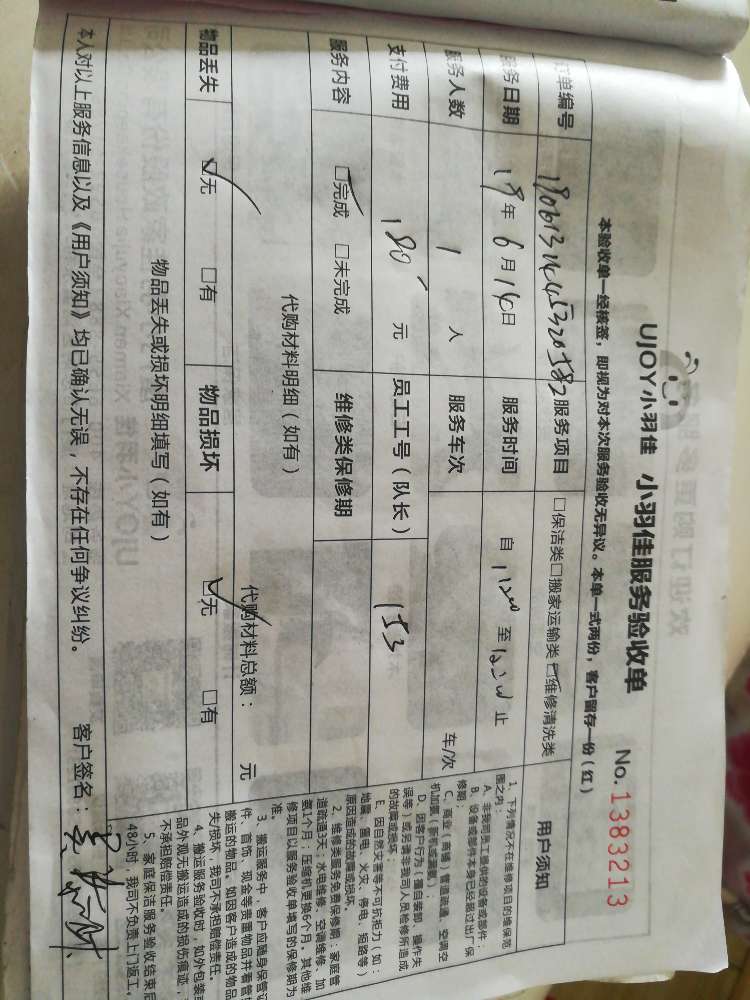 UJOY小羽佳 小羽佳服务验收单
No. 1383213
本验收单一经核签，即视为对本次服务验收无异议。本单一式两份，客户留存一份（红）
订单编号
服务项目 □保洁类□搬家运输类□维修清洗类
服务日期 19年6月14日 服务时间 自 至 止
服务人数 1 人 服务车次 车/次
支付费用 180 元 员工工号（队长） 153
服务内容 □完成 □未完成 维修类保修期
代购材料明细（如有）
代购材料总额： 元
物品丢失 □无 □有 物品损坏 □无 □有
物品丢失或损坏明细填写（如有）
本人对以上服务信息以及《用户须知》均已确认无误，不存在任何争议纠纷。 客户签名：
用户须知
1、下列情况不在维修项目的维保范
围之内：
A、非我司员工提供的设备或部件；
B、设备或部件本身已经超过出厂保
修期；
C、商业（商铺）管道疏通、空调空
D、因客户行为（擅自装卸、操作失
误等）或者另请非我司人员检修所造成
的故障或损坏；
E、因自然灾害等不可抗拒力（如：
地震、雷电、火灾、停电、短路等）
原因造成的故障或损坏
2、维修类服务免费保修期：家庭管
道疏通3天；水电维修、空调维修、加
氨1个月；压缩机更换6个月，其他维
修项目以服务验收单填写的保修期为
准。
3、搬运服务中，客户应随身保管证
件、首饰、现金等贵重物品并看管
搬运的物品。如因客户造成的物品
失/损坏，我司不承担赔偿责任。
4、搬运服务验收时，如外包装
品外观无搬运造成的损伤痕迹，
不承担赔偿责任。
5、家庭保洁服务验收结束后
48小时，我司不负责上门返工。